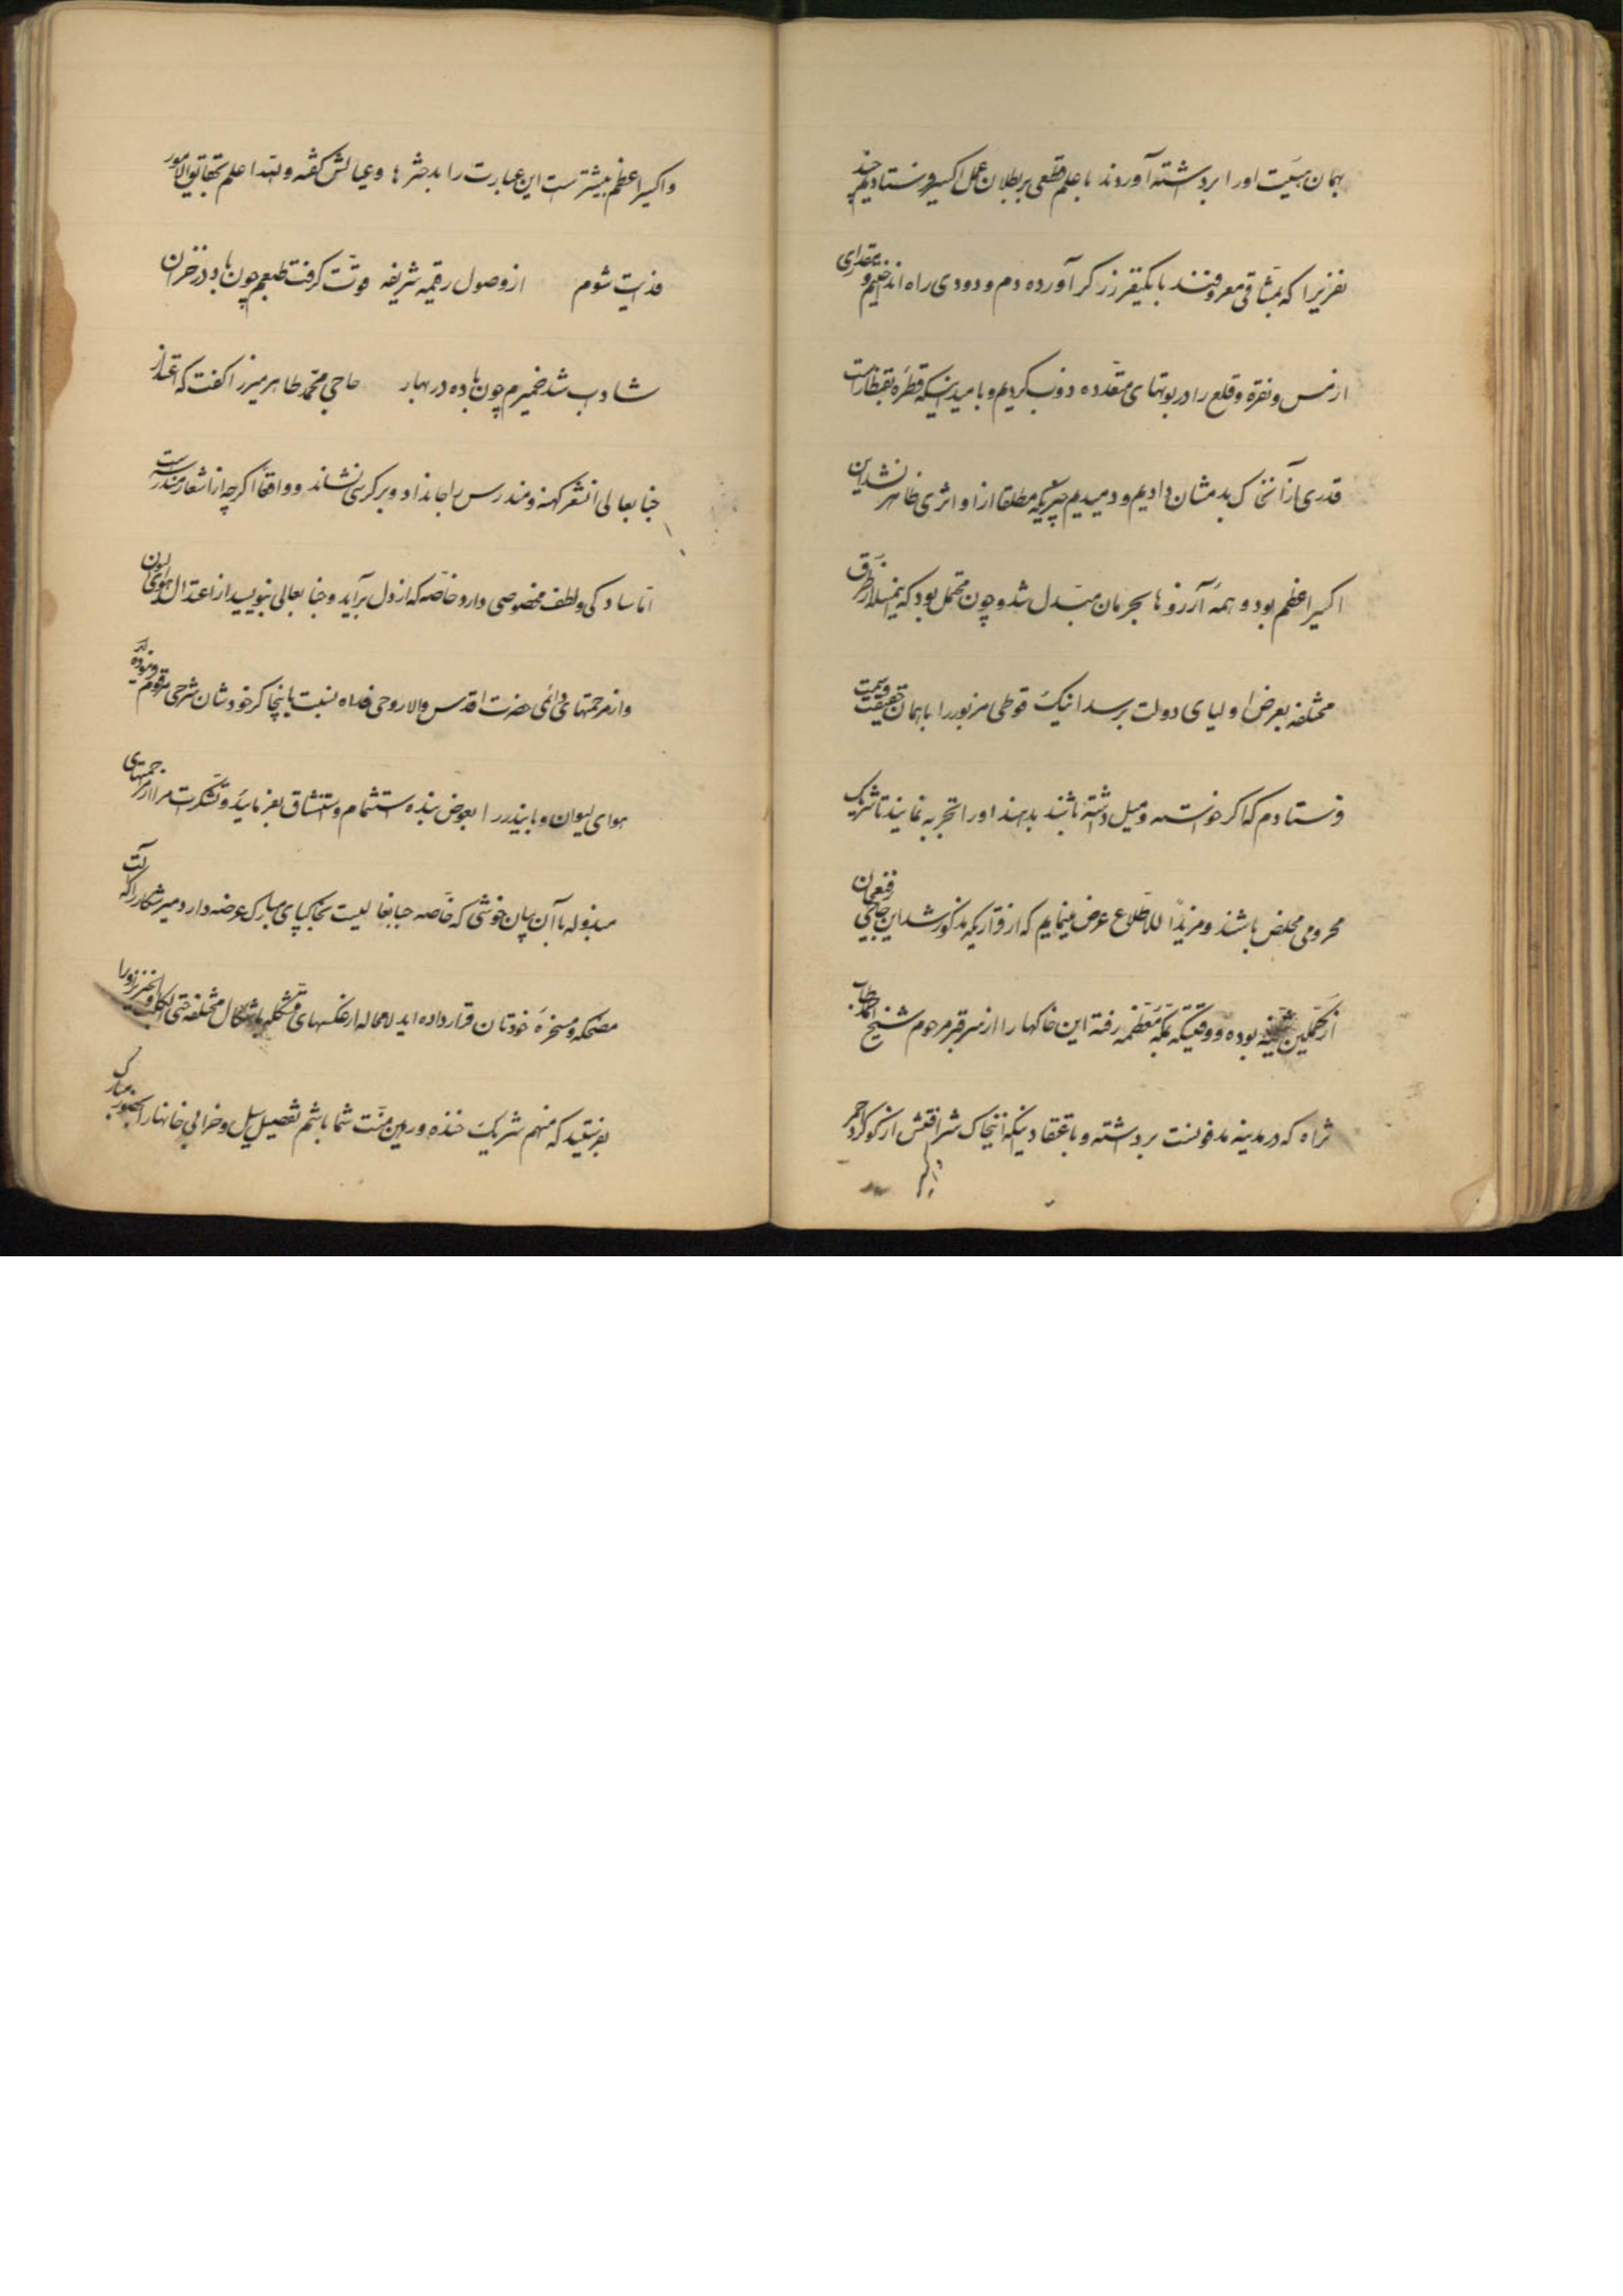 بهمان هیئت او را برداشته آوردند با علم قطعی بر بطلان عمل اکسیر فرستادیم چند
نفریرا که بمشاقی معروفند با یکنفر زرگر آورده دم و دودی راه انداختیم و مقداری
از مس و نقره و قلع را در بوتهای متعدده ذوب کردیم و بامید اینکه قطره بقنطار است
قدری از آنخاک بدمشان دادیم و دمیدیم چیزیکه مطلقا از او اثری ظاهر نشد این
اکسیر اعظم بود و همه آرزوها بحرمان مبدل شد و چون محتمل بود که این مسئله از طرق
مختلفه بعرض اولیای دولت برسد اینک قوطی مزبور را با همان حقیقت
فرستادم که اگر خواسته و میل داشته باشند بدهند او را تجربه نمایند تا شریک
محرومی مخلص باشند و مزیداً للاطلاع عرض مینمایم که از قراریکه مذکور شد این حاجی
بوده و وقتیکه بمکه معظمه رفته این خاکها را از سر قبر مرحوم شیخ احمد طاب
ثراه که در مدینه مدفونست برداشته و باعتقاد اینکه اینخاک شرافتش از گوگرد احمر
و اکسیر اعظم بیشتر است این عبارت را بدخترها و عیالش گفته و الله اعلم بحقایق الامور
فدایت شوم از وصول رقیمه شریفه قوت گرفت طبعم چون باد در خزان
شاداب شد ضمیرم چون باده در بهار حاجی محمد طاهر میرزا گفت که اعتذار
جنابعالی آنشعر کهنه و مندرس را بجا نداد و بر کرسی نشاند و واقعاً اگر چه از اشعار مندرسه است
اما سادگی و لطف مخصوصی دارد خاصه که از دل برآید و جنابعالی بنویسید از اعتدال هوای لیوان
و از مرحمتهای دائمی حضرت اقدس والا روحی فداه نسبت باینچاکر خودشان شرحی مرقوم فرموده اید
هوای لیوان و بابیندر را بعوض بنده استشمام و استنشاق بفرمائید و تشکرات مرا از مرحمتهای
مبذوله با آن بیان خوشی که خاصه جنابعالیست بخاکپای مبارک عرضه دارد میرشکار را که آلت
مضحکه و مسخره خودتان قرار داده اید لامحاله از عکسهای متشکله باشکال مختلفه حتی الکلب و الخنزیر او را
بفرستید که منهم شریک خنده و رهین منت شما باشم تفصیل سیل و خرابی خانها را بحضور مبارک